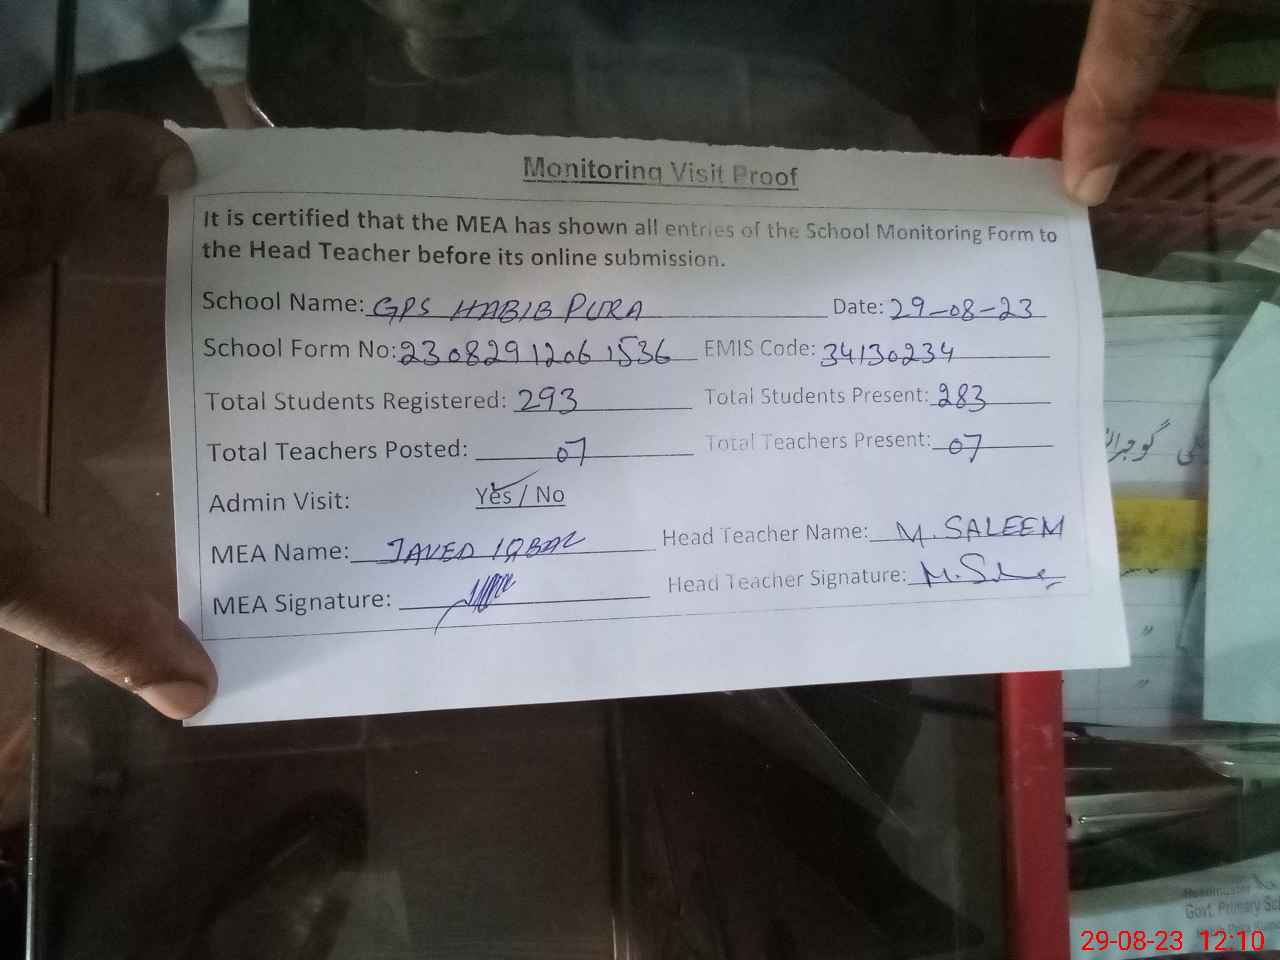 Monitoring Visit Proof
It is certified that the MEA has shown all entries of the School Monitoring Form to
the Head Teacher before its online submission.
School Name: GPS HABIB PURA Date: 29-08-23
School Form No: 23082912061536 EMIS Code: 34130234
Total Students Registered: 293 Total Students Present: 283
Total Teachers Posted: 07 Total Teachers Present: 07
Admin Visit: Yes / No
MEA Name: JAVED IQBAL Head Teacher Name: M. SALEEM
MEA Signature: Head Teacher Signature:
Govt. Primary
29-08-23 12:10